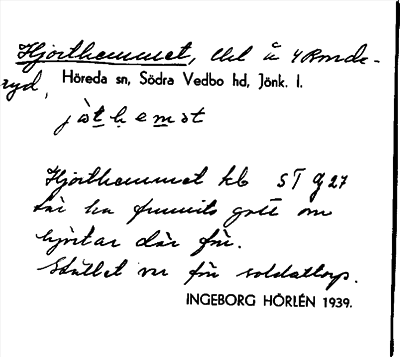 Hjorthemmet, lht å 4 Runde-
ryd, Höreda sn, Södra Vedbo hd, Jönk. l.
Hjorthemmet kb ST g 27
här ha funnits gott om
hjortar där för.
Stället var för soldattorp.
INGEBORG HÖRLÉN 1939.